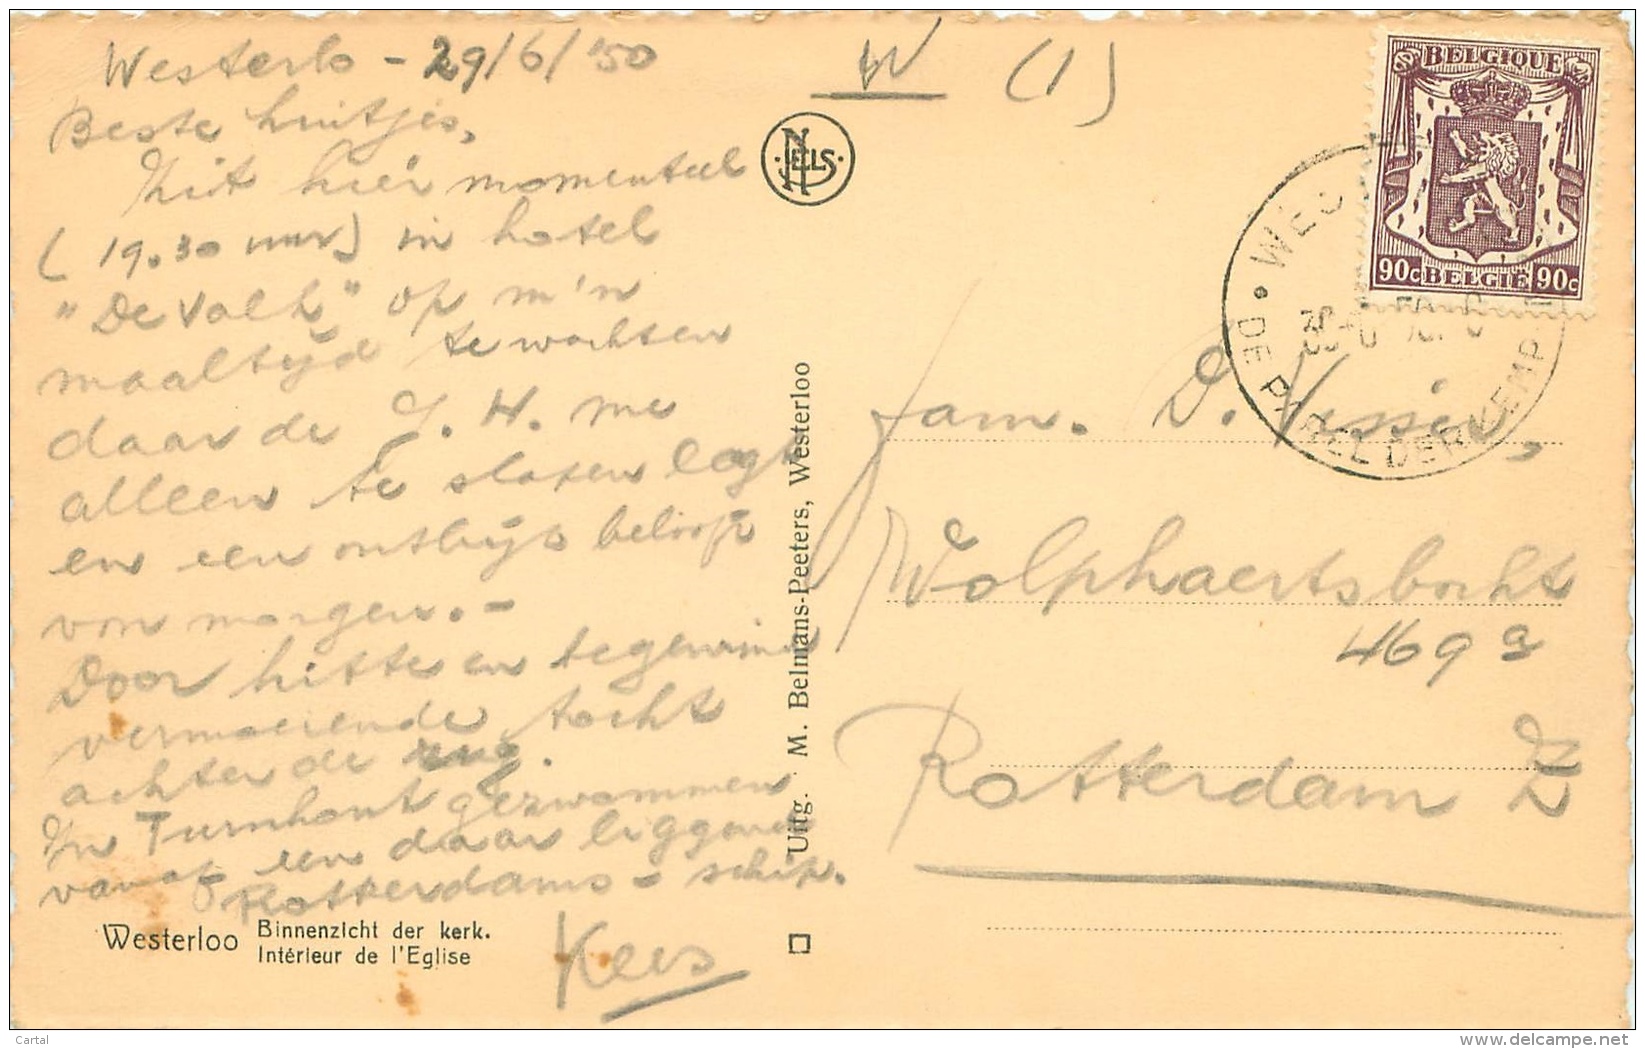 Westerlo - 29/6/'50
Beste luitjes,
Zit hier momenteel
(19.30 uur) in hotel
"De Valk" op m'n
maaltijd te wachten
daar de J. H. me
alleen te slapen legt
en een ontbijt belooft
von morgen. -
Door hitte en tegenwind
vermoeiende tocht
achter de rug.
In Turnhout gezwommen
vanaf een daar liggend
Rotterdams - schip.
Kees
Westerloo
Binnenzicht der kerk.
Intérieur de l'Eglise
W (1)
NELS
Uitg. M. Belmans-Peeters, Westerloo
BELGIQUE
90c BELGIË 90c
DE PAREL DER KEMP
Fam. D. Visser,
Wolphaertsbocht
469 a
Rotterdam Z
Cartal
www.delcampe.net